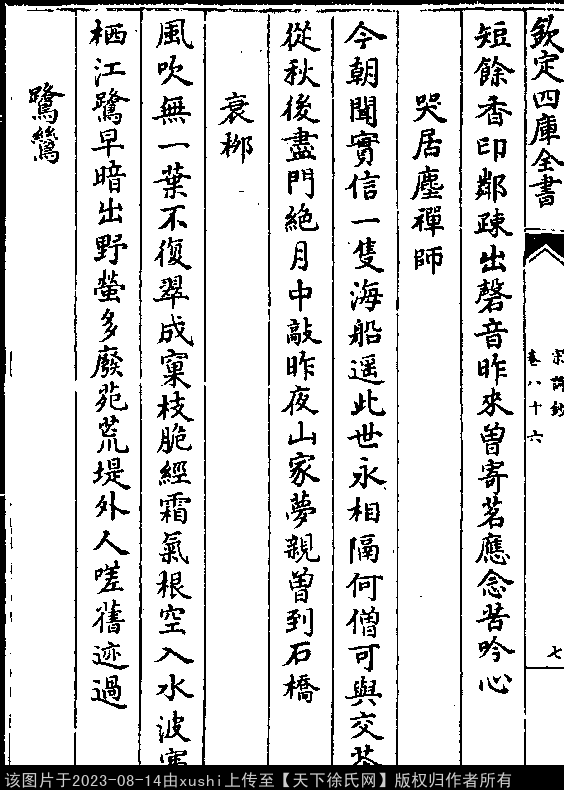 欽定四庫全書
宋詩鈔
卷八十六
七
短餘香印鄰疎出磬音昨來曽寄茗應念苦吟心
哭居塵禪師
今朝聞實信一隻海船遥此世永相隔何僧可與交
從秋後盡門絶月中敲昨夜山家夢親曽到石橋
衰栁
風吹無一葉不復翠成窠枝脆經霜氣根空入水波
栖江鷺早暗出野螢多廢苑荒堤外人嗟舊迹過
鷺鷥
该图片于2023-08-14由xushi上传至【天下徐氏网】版权归作者所有